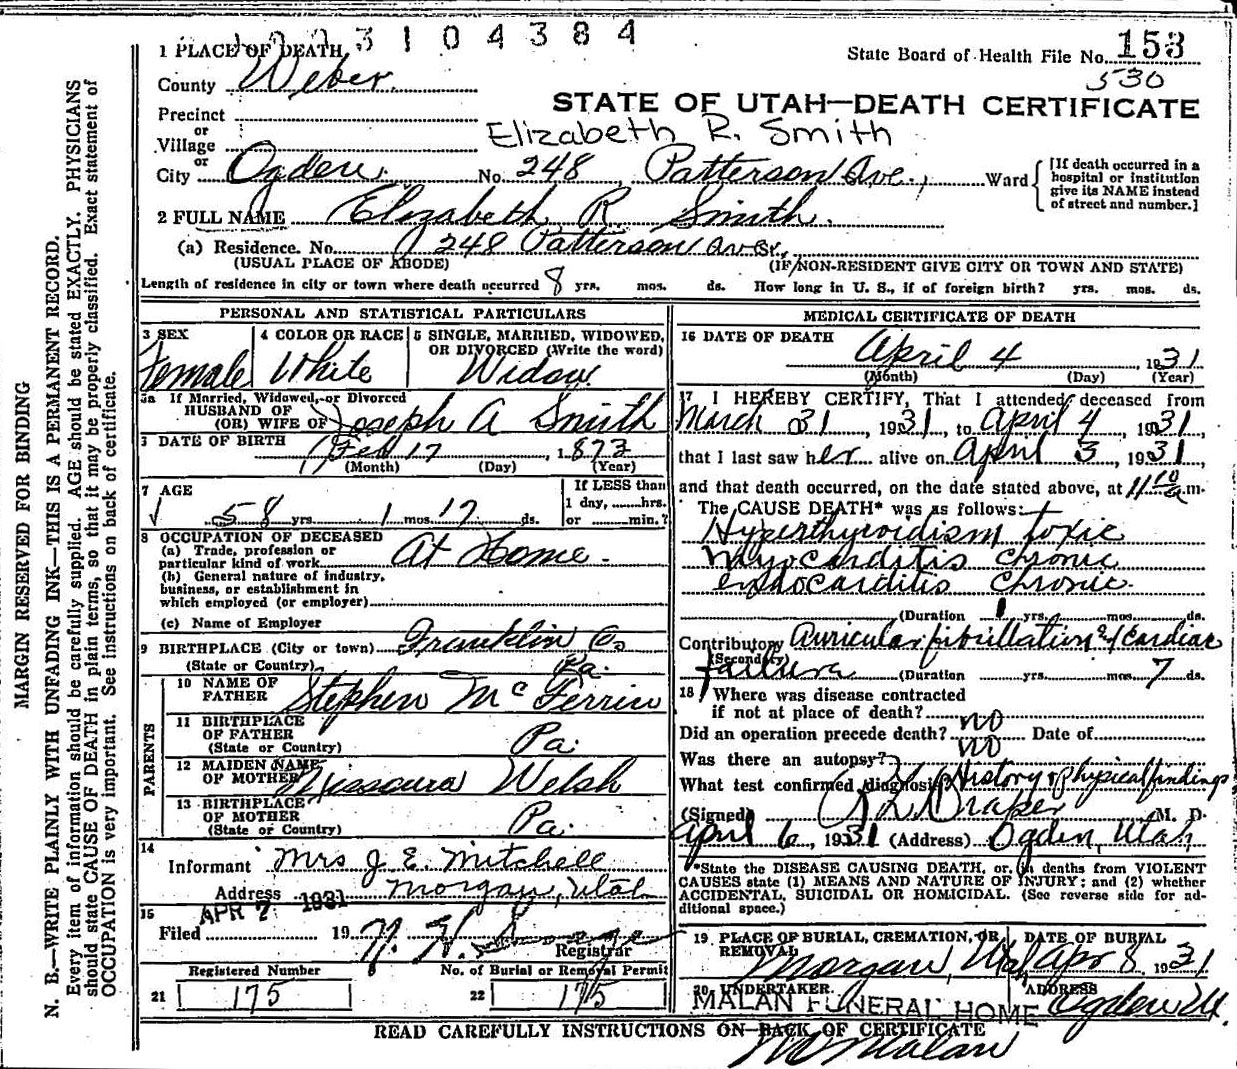 3104384
1 PLACE OF DEATH,
State Board of Health File No. 153
County Weber
530
STATE OF UTAH—DEATH CERTIFICATE
Precinct
or
Village
Elizabeth R. Smith
or
City Ogden No. 248 Patterson Ave., Ward
[If death occurred in a
hospital or institution
give its NAME instead
of street and number.]
2 FULL NAME Elizabeth R Smith.
(a) Residence. No. 248 Patterson Ave. St.,
(USUAL PLACE OF ABODE) (IF NON-RESIDENT GIVE CITY OR TOWN AND STATE)
Length of residence in city or town where death occurred 8 yrs. mos. ds. How long in U. S., if of foreign birth? yrs. mos. ds.
PERSONAL AND STATISTICAL PARTICULARS
3 SEX
Female
4 COLOR OR RACE
White
5 SINGLE, MARRIED, WIDOWED,
OR DIVORCED (Write the word)
Widow
5a If Married, Widowed, or Divorced
HUSBAND OF
(OR) WIFE OF Joseph A Smith
DATE OF BIRTH Feb 17, 1873
(Month) (Day) (Year)
7 AGE
58 yrs. 1 mos. 17 ds.
If LESS than
1 day, hrs.
or min.?
8 OCCUPATION OF DECEASED
(a) Trade, profession or
particular kind of work At Home.
(b) General nature of industry,
business, or establishment in
which employed (or employer)
(c) Name of Employer
9 BIRTHPLACE (City or town) Franklin Co
(State or Country) Pa.
PARENTS
10 NAME OF
FATHER Stephen McFerrin
11 BIRTHPLACE
OF FATHER
(State or Country) Pa.
12 MAIDEN NAME
OF MOTHER Welsh
13 BIRTHPLACE
OF MOTHER
(State or Country) Pa.
14
Informant Mrs J. E. Mitchell
Address Morgan, Utah
15
Filed APR 7 1931 19
Registrar
Registered Number
21 175
No. of Burial or Removal Permit
22 175
MEDICAL CERTIFICATE OF DEATH
16 DATE OF DEATH
April 4, 1931
(Month) (Day) (Year)
17 I HEREBY CERTIFY, That I attended deceased from
March 31, 1931, to April 4, 1931,
that I last saw her alive on April 3, 1931
and that death occurred, on the date stated above, at 11 10 a m.
The CAUSE DEATH* was as follows:
Hyperthyroidism toxic
Myocarditis chronic
endocarditis chronic.
(Duration 1 yrs. mos. ds.
Contributory Auricular fibrillation & cardiac
(Secondary) failure (Duration yrs. mos. 7 ds.
18 Where was disease contracted
if not at place of death?
Did an operation precede death? no Date of
Was there an autopsy? no
What test confirmed diagnosis? History & physical findings
(Signed) Draper M. D.
April 6, 1931 (Address) Ogden, Utah
*State the DISEASE CAUSING DEATH, or, in deaths from VIOLENT
CAUSES state (1) MEANS AND NATURE OF INJURY; and (2) whether
ACCIDENTAL, SUICIDAL OR HOMICIDAL. (See reverse side for ad-
ditional space.)
19 PLACE OF BURIAL, CREMATION, OR
REMOVAL
Morgan, Utah
DATE OF BURIAL
Apr 8 1931
20 UNDERTAKER.
MALAN FUNERAL HOME
ADDRESS
Ogden Ut.
READ CAREFULLY INSTRUCTIONS ON BACK OF CERTIFICATE
Malan
MARGIN RESERVED FOR BINDING
N. B.—WRITE PLAINLY WITH UNFADING INK—THIS IS A PERMANENT RECORD.
Every item of information should be carefully supplied. AGE should be stated EXACTLY. PHYSICIANS
should state CAUSE OF DEATH in plain terms, so that it may be properly classified. Exact statement of
OCCUPATION is very important. See instructions on back of certificate.